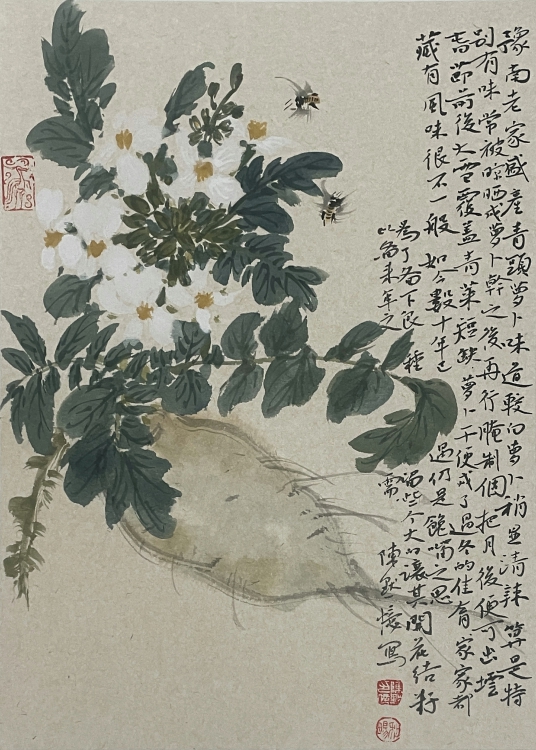 豫南老家盛產青頭萝卜味道較白萝卜稍显清辣算是特
别有味常被晾晒成萝卜幹之後再行腌制個把月後便可出壜
春節前後大雪覆盖青菜短缺萝卜干便成了過冬的佳肴家家都
藏有風味很不一般如今數十年已過仍是饞嘴之思
為了留下良種
以备来年之需
過些个大的讓其開花结籽
陳
寫